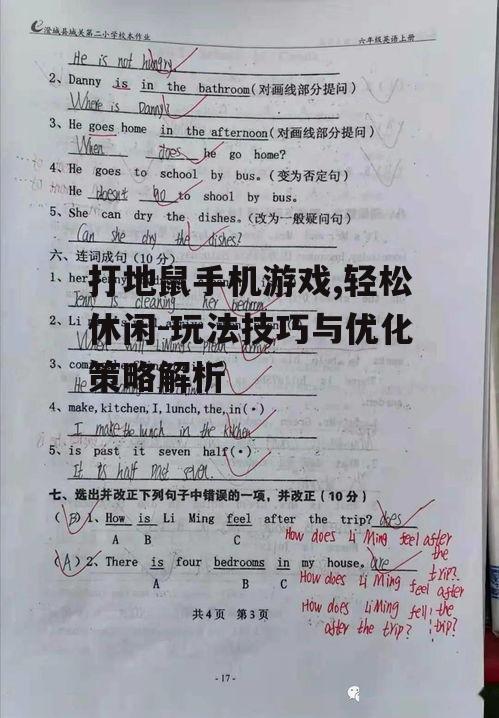 澄城县城关第二小学校本作业 六年级英语上册
He is not hungry
2、Danny is in the bathroom(对画线部分提问)
Where is Danny?
3、He goes home in the afternoon(对画线部分提问)
When does he go home?
4、He goes to school by bus.(变为否定句)
He doesn't go to shool by bus.
5、She can dry the dishes.(改为一般疑问句)
Can she dry the dishes?
六、连词成句(10分)
打地鼠手机游戏,轻松
1、her
Jenny is cleaning her bedroom
休闲-玩法技巧与优化
2、Li
策略解析
3、com
4、make,kitchen,I,lunch,the,in(·)
I make the lunch in the kitchen
5、is past it seven half(·)
It is half past seven.
七、选出并改正下列句子中错误的一项,并改正(10分)
(B)1、How is Li Ming feel after the trip? does
A B C
How does Li Ming feel after the trip?
(A)2、There is four bedrooms in my house. are
A B C
How does Li Ming feel after the trip?
How does Li Ming fell after the trip?
共4页 第3页
-17-